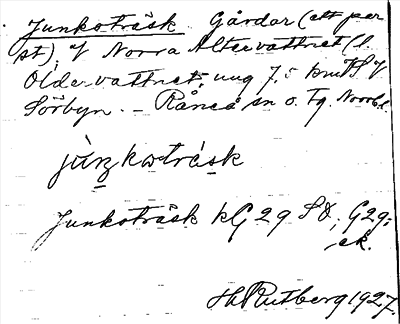 Junkoträsk Gårdar (ett par
st), V Norra Altervattnet (l.
Oldervattnet, ung 7,5 km S V
Sörbyn. – Råneå sn o. Tg. Norrb.
jùṉkoträsk
Junkoträsk kG 29 SO, G29.
ek.
H. Rutberg 1927.